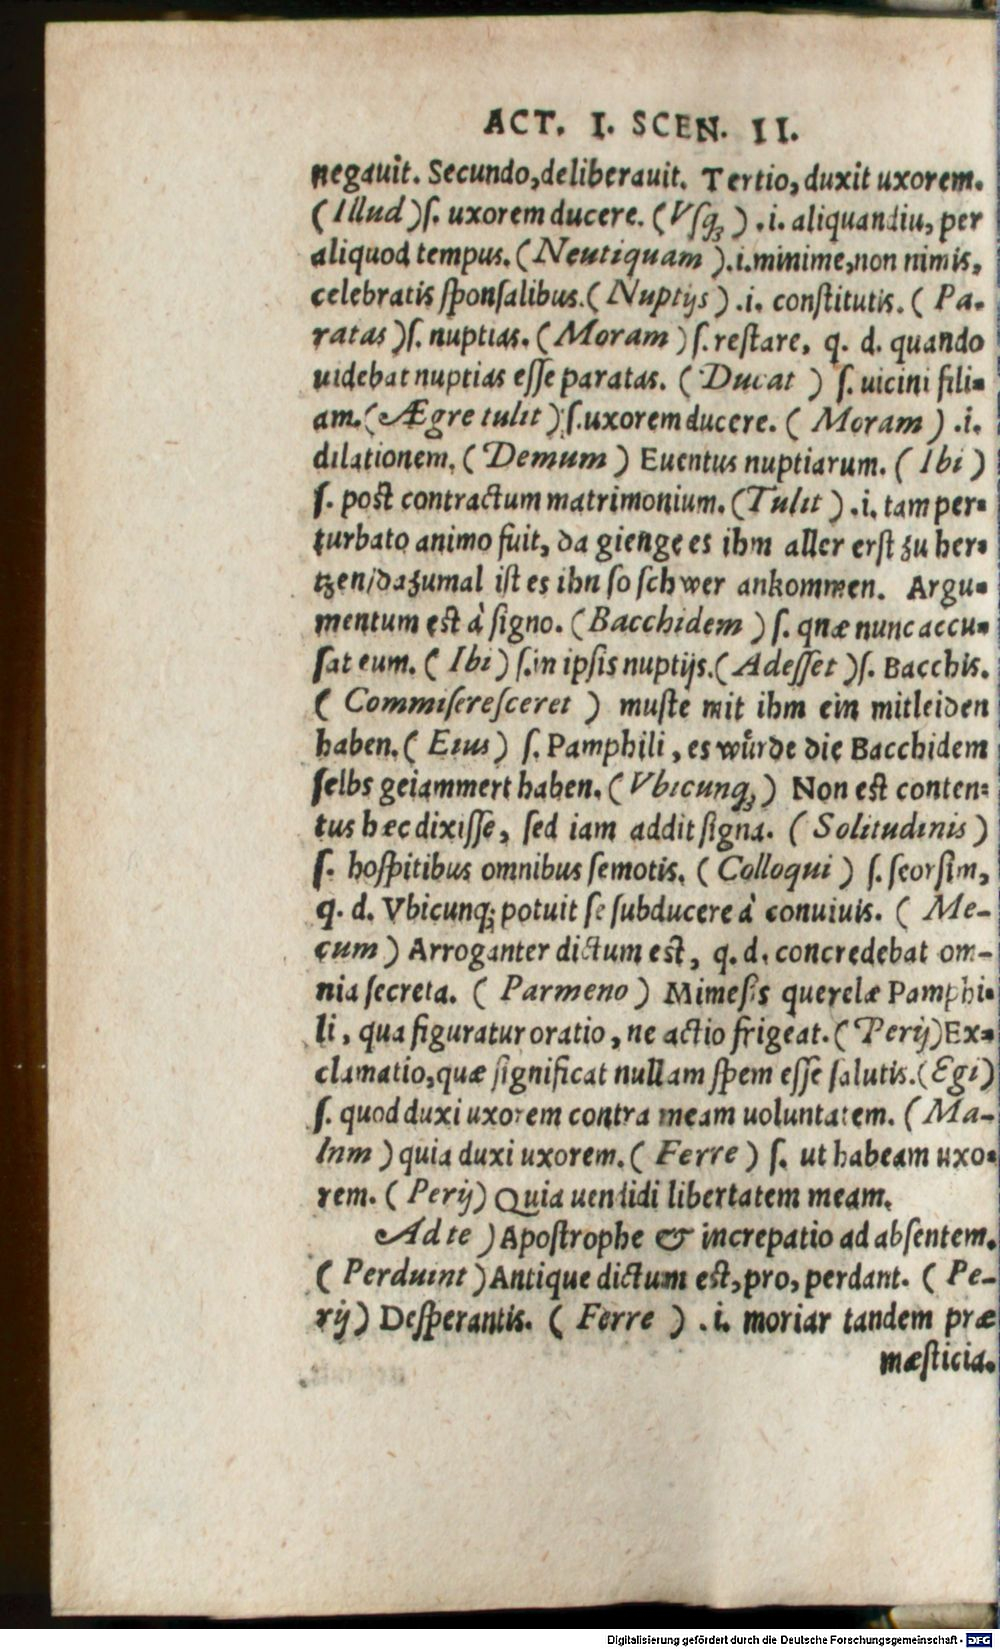 ACT. I. SCEN. II.
negauit. Secundo, deliberauit. Tertio, duxit uxorem.
(Illud) ſ. uxorem ducere. (Vſq;) .i. aliquandiu, per
aliquod tempus. (Neutiquam) .i. minime, non nimis,
celebratis ſponſalibus. (Nuptijs) .i. conſtitutis. (Pa-
ratas) ſ. nuptias. (Moram) ſ. reſtare, q. d. quando
uidebat nuptias eſſe paratas. (Ducat) ſ. uicini fili-
am. (Ægre tulit) ſ. uxorem ducere. (Moram) .i.
dilationem. (Demum) Euentus nuptiarum. (Ibi)
ſ. poſt contractum matrimonium. (Tulit) .i. tam per-
turbato animo fuit, da gienge es ihm aller erſt zu her-
tzen/dazumal iſt es ihn ſo ſchwer ankommen. Argu-
mentum eſt à ſigno. (Bacchidem) ſ. qnæ nunc accu-
ſat eum. (Ibi) ſ. in ipſis nuptijs. (Adeſſet) ſ. Bacchis.
(Commiſereſceret) muſte mit ihm ein mitleiden
haben. (Eius) ſ. Pamphili, es wuͤrde die Bacchidem
ſelbs geiammert haben. (Vbicunq;) Non eſt conten-
tus hæc dixiſſe, ſed iam addit ſigna. (Solitudinis)
ſ. hoſpitibus omnibus ſemotis. (Colloqui) ſ. ſeorſim,
q. d. Vbicunq; potuit ſe ſubducere à conuiuis. (Me-
cum) Arroganter dictum eſt, q. d. concredebat om-
nia ſecreta. (Parmeno) Mimeſis querelæ Pamphi-
li, qua figuratur oratio, ne actio frigeat. (Perij) Ex-
clamatio, quæ ſignificat nullam ſpem eſſe ſalutis. (Egi)
ſ. quod duxi uxorem contra meam uoluntatem. (Ma-
lnm) quia duxi uxorem. (Ferre) ſ. ut habeam uxo-
rem. (Perij) Quia uendidi libertatem meam.
Ad te) Apoſtrophe & increpatio ad abſentem.
(Perduint) Antique dictum eſt, pro, perdant. (Pe-
rij) Deſperantis. (Ferre) .i. moriar tandem præ
mæſticia.
Digitalisierung gefördert durch die Deutsche Forschungsgemeinschaft - DFG